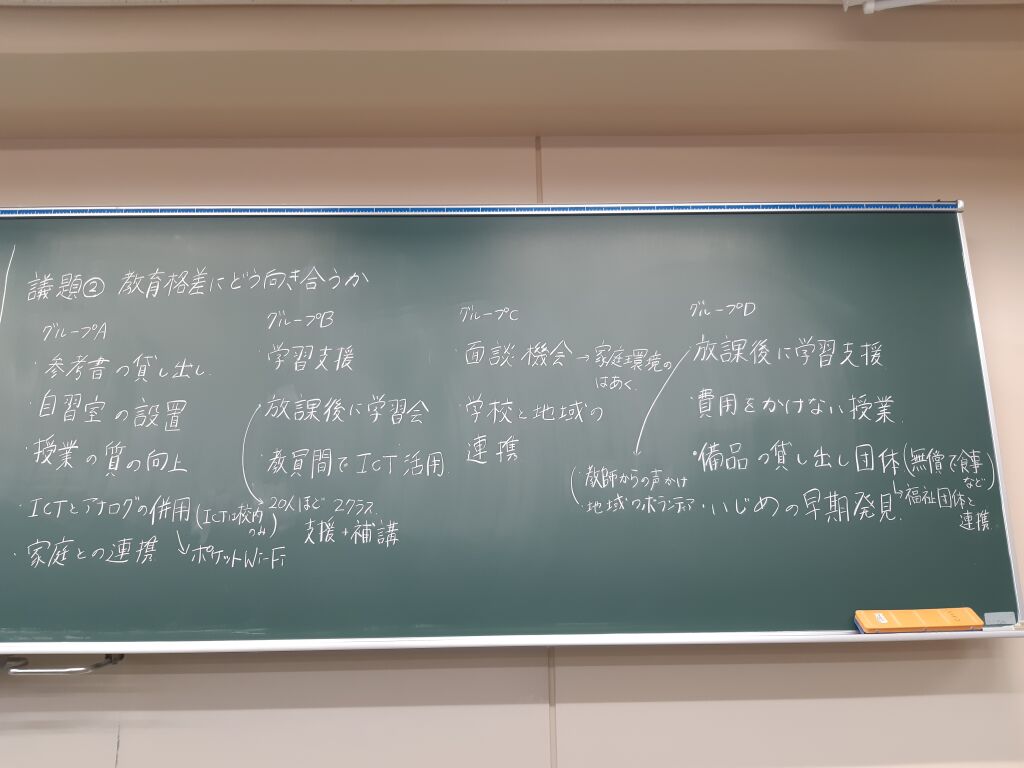 議題② 教育格差にどう向き合うか
グループA
・参考書の貸し出し
・自習室の設置
・授業の質の向上
・ICTとアナログの併用(ICTは校内のみ)
↳ポケットWi-Fi
・家庭との連携
グループB
・学習支援
・放課後に学習会
・教員間でICT活用
20人ほど 2クラス
支援+補講
グループC
・面談機会→家庭環境の
はあく。
・学校と地域の
連携
グループD
・放課後に学習支援
(・教師からの声かけ
・地域のボランティア
・費用をかけない授業
・備品の貸し出し団体(無償で食事
など)
↳福祉団体と
連携
・いじめの早期発見